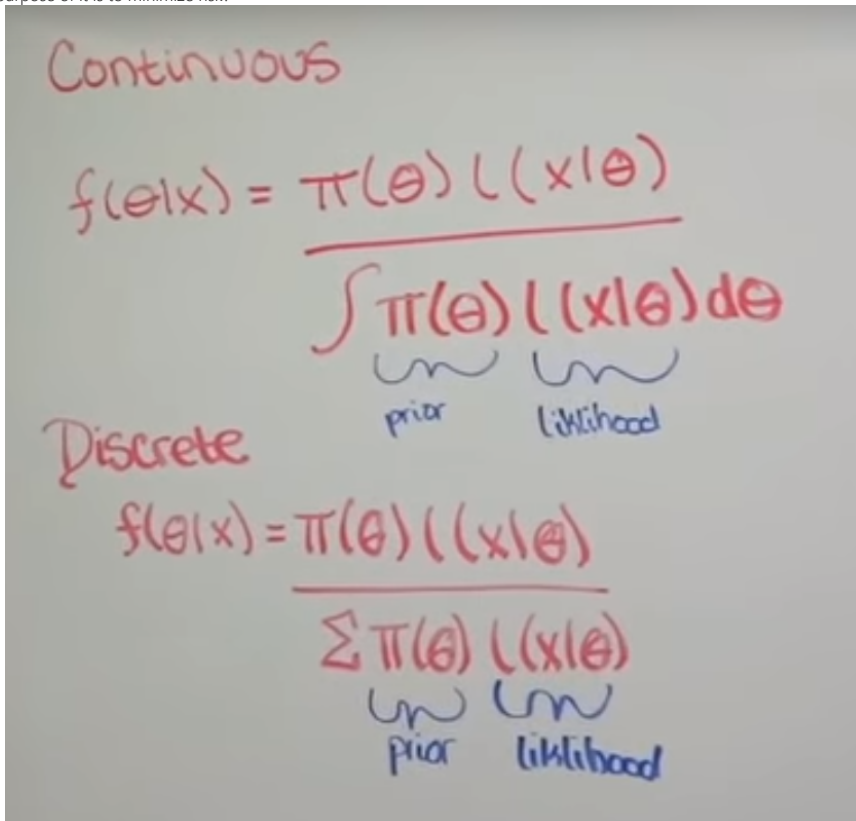 Continuous
f(θ|x) = π(θ) l(x|θ)
∫ π(θ) l(x|θ) dθ
prior liklihood
Discrete
f(θ|x) = π(θ) l(x|θ)
Σ π(θ) l(x|θ)
prior liklihood